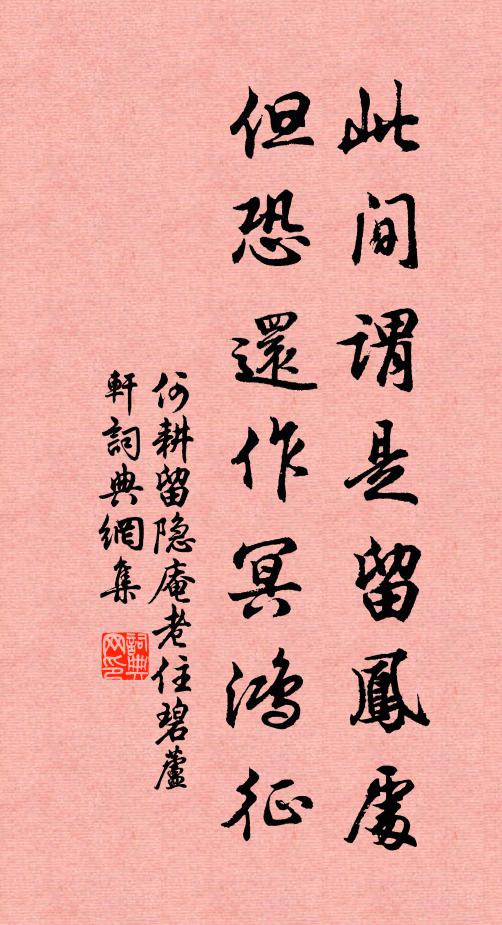 此间謂是留鳳處
但恐還作冥鴻征
何耕留隐庵老住碧蘆
軒詞典網集
詞典网印